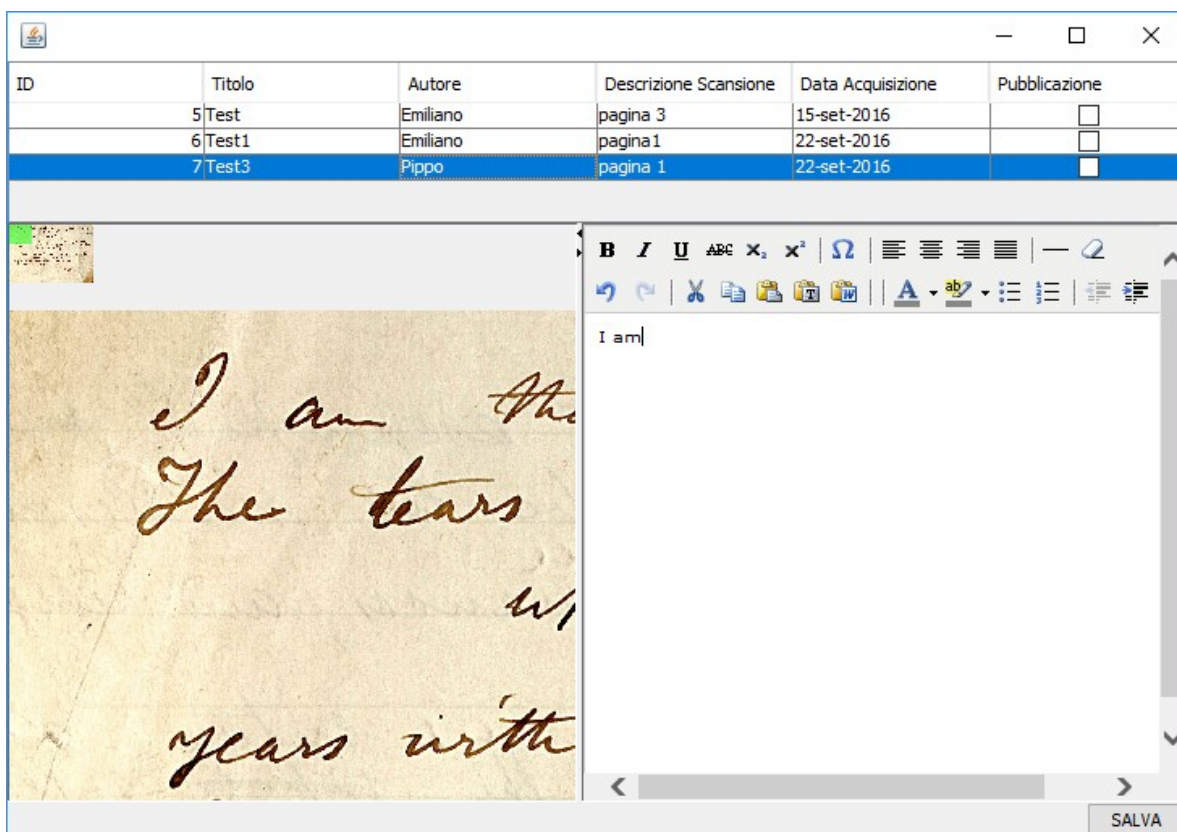 ID Titolo Autore Descrizione Scansione Data Acquisizione Pubblicazione
5 Test Emiliano pagina 3 15-set-2016
6 Test1 Emiliano pagina1 22-set-2016
7 Test3 Pippo pagina 1 22-set-2016
B I U ABC X₂ X² Ω
T W A ab
I am
I am
The tears
years with
SALVA